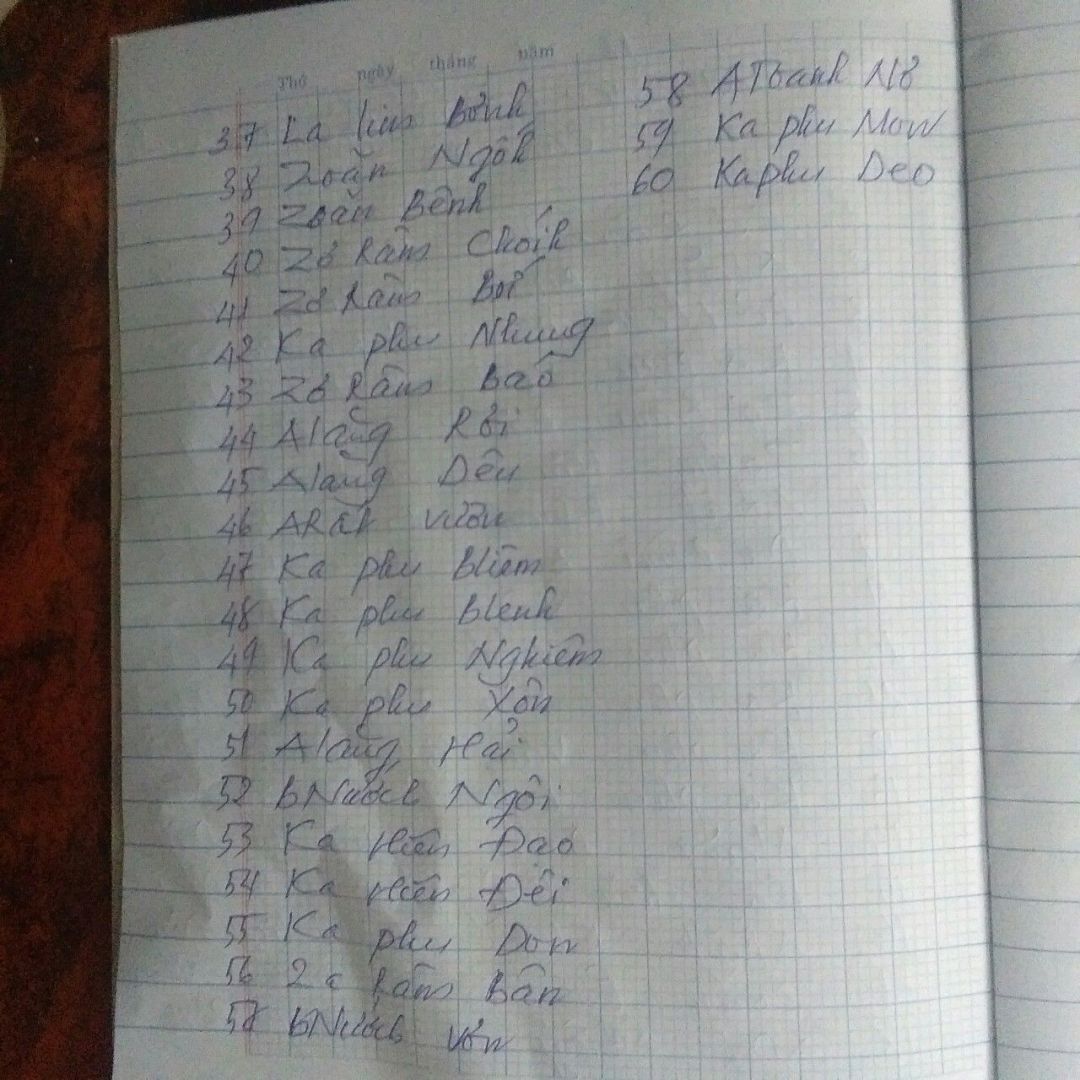 Thứ ngày tháng năm
37 La lim Bỏnh
38 Zoăn Ngôh
39 Zoăn Bênh
40 Zơ Râm Choih
41 Zơ Râm Bơi
42 Ka phu Nhung
43 Zơ Râm Baô
44 Alăng Rơi
45 Alăng Dêu
46 ARât Vườn
47 Ka phu Bliêm
48 Ka phu Blenh
49 Ka phu Nghiêm
50 Ka phu Xôn
51 Alăng Hải
52 bNướch Ngôi
53 Ka Hiên Đạo
54 Ka Hiên Đêi
55 Ka phu Don
56 Râm Bân
57 bNướch Vơn
58 AToanh Nơ
59 Ka phu Mon
60 Ka phu Deo